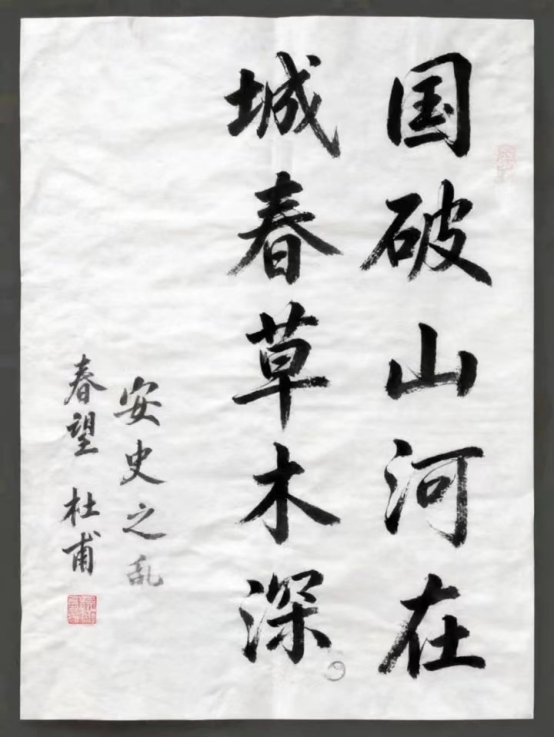 国破山河在
城春草木深。
安史之乱
春望 杜甫